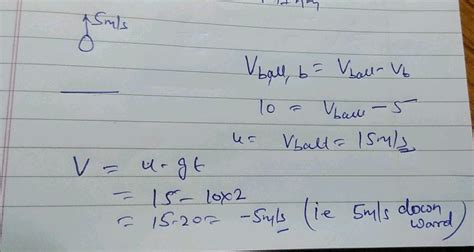 5m/s
V ball, b = V ball - V b
10 = V ball - 5
u = V ball = 15m/s
V = u - gt
= 15 - 10x2
= 15-20 = -5m/s (ie 5m/s down
ward)